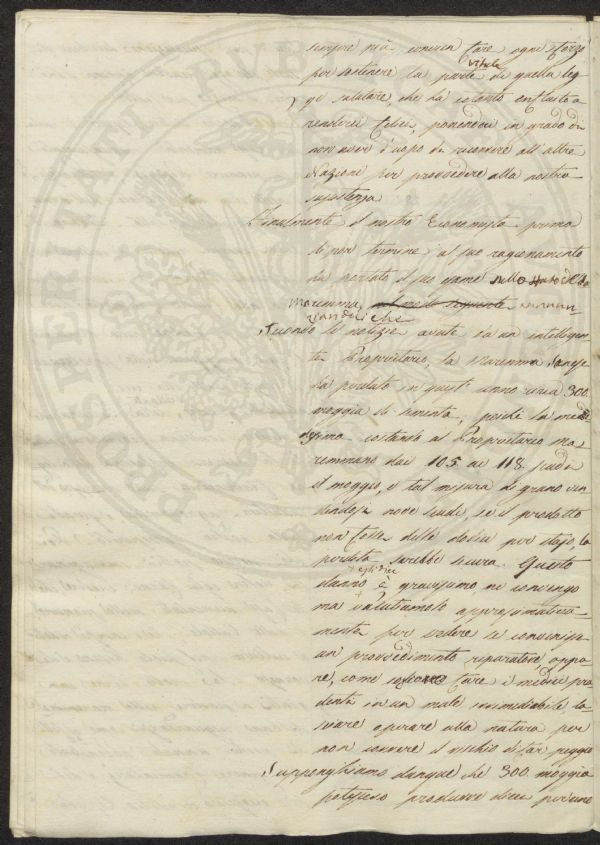 sempre più convien fare ogni sforzo
vitale
per sostenere la parte di quella leg-
ge salutare, che ha cotanto influito a
renderci felici, ponendoci in grado di
non aver d'uopo di ricorrere all'altre
Nazioni per provvedere alla nostra
sussistenza
Finalmente il nostro Economista prima
di por termine al suo ragionamento
ha portato il suo esame sullo stato della
Maremma,
che
Secondo le notizie avute da un intelligen-
te Proprietario, la Maremma Sanese
ha perduto in quest'anno circa 300.
moggia di sementa, poiché la mede-
desima costando al Proprietario Ma-
remmano dai 105 ai 118 scudi
il moggio, e tal misura di grano ven-
dendosi nove scudi, se il prodotto
non fosse delle dodici per stajo, la
perdita sarebbe sicura. Questo
danno è gravissimo, ne convengo
ma valutiamolo approssimativa-
mente per vedere se convenisse
un provvedimento riparatore, oppu-
re, come fare i medici pru-
denti in un male irrimediabile la-
sciare operare alla natura per
non correre il rischio di far peggio
Supponghiamo dunque che 300. moggia
potessero produrre dieci per uno
PROSPERITATI PVBLICAE